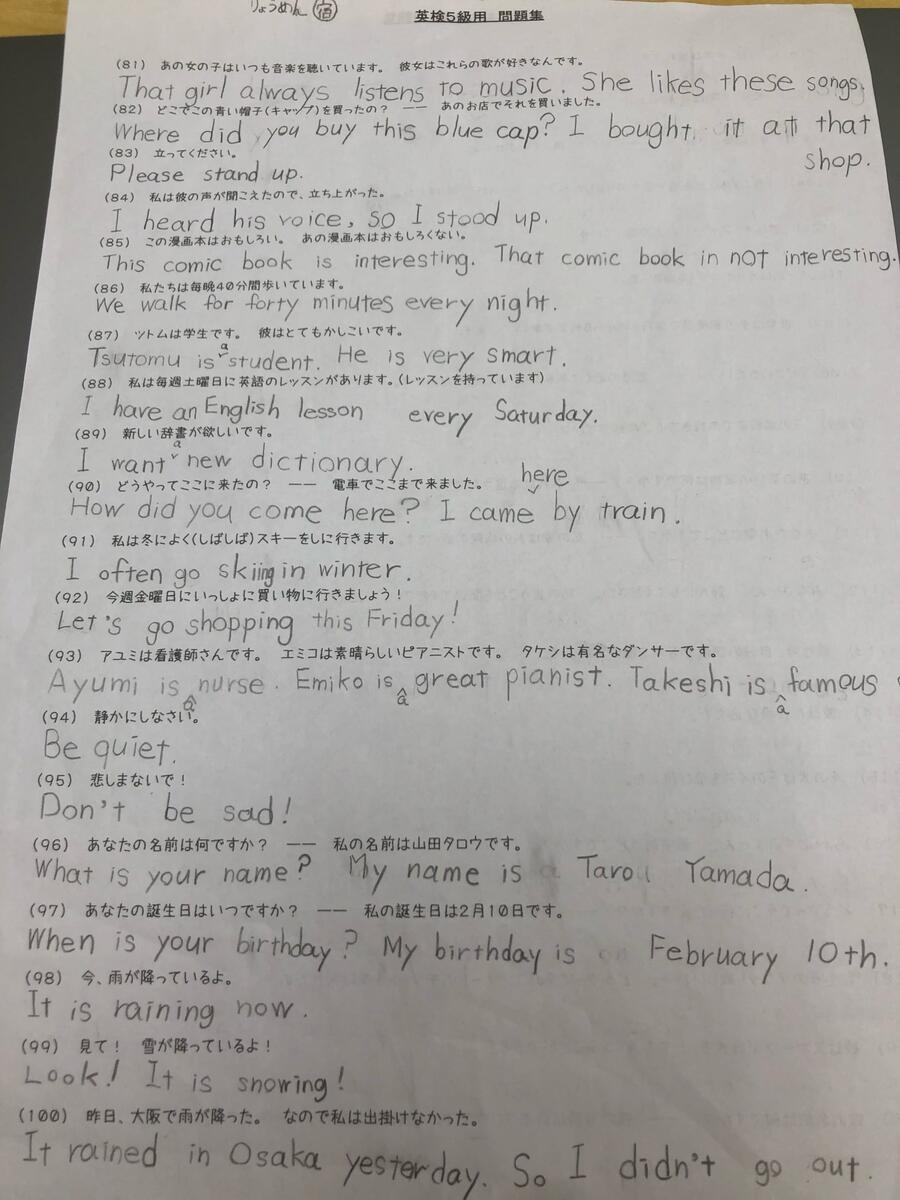 りょうめん 宿
英検5級用 問題集
(81) あの女の子はいつも音楽を聴いています。 彼女はこれらの歌が好きなんです。
That girl always listens to music. She likes these songs.
(82) どこでこの青い帽子(キャップ)を買ったの? —— あのお店でそれを買いました。
Where did you buy this blue cap? I bought it at that
shop.
(83) 立ってください。
Please stand up.
(84) 私は彼の声が聞こえたので、立ち上がった。
I heard his voice, so I stood up.
(85) この漫画本はおもしろい。 あの漫画本はおもしろくない。
This comic book is interesting. That comic book in not interesting.
(86) 私たちは毎晩40分間歩いています。
We walk for forty minutes every night.
(87) ツトムは学生です。 彼はとてもかしこいです。
Tsutomu is a student. He is very smart.
(88) 私は毎週土曜日に英語のレッスンがあります。(レッスンを持っています)
I have an English lesson every Saturday.
(89) 新しい辞書が欲しいです。
I want a new dictionary.
(90) どうやってここに来たの? —— 電車でここまで来ました。
How did you come here? I came here by train.
(91) 私は冬によく(しばしば)スキーをしに行きます。
I often go skiing in winter.
(92) 今週金曜日にいっしょに買い物に行きましょう!
Let's go shopping this Friday!
(93) アユミは看護師さんです。 エミコは素晴らしいピアニストです。 タケシは有名なダンサーです。
Ayumi is a nurse. Emiko is a great pianist. Takeshi is a famous
(94) 静かにしなさい。
Be quiet.
(95) 悲しまないで!
Don't be sad!
(96) あなたの名前は何ですか? —— 私の名前は山田タロウです。
What is your name? My name is Tarou Yamada.
(97) あなたの誕生日はいつですか? —— 私の誕生日は2月10日です。
When is your birthday? My birthday is February 10th.
(98) 今、雨が降っているよ。
It is raining now.
(99) 見て! 雪が降っているよ!
Look! It is snowing!
(100) 昨日、大阪で雨が降った。 なので私は出掛けなかった。
It rained in Osaka yesterday. So I didn't go out.